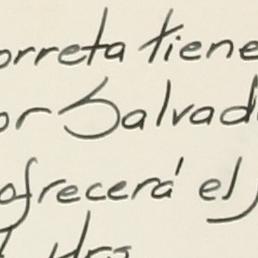 orreta tiene
or Salvad
ofrecerá el